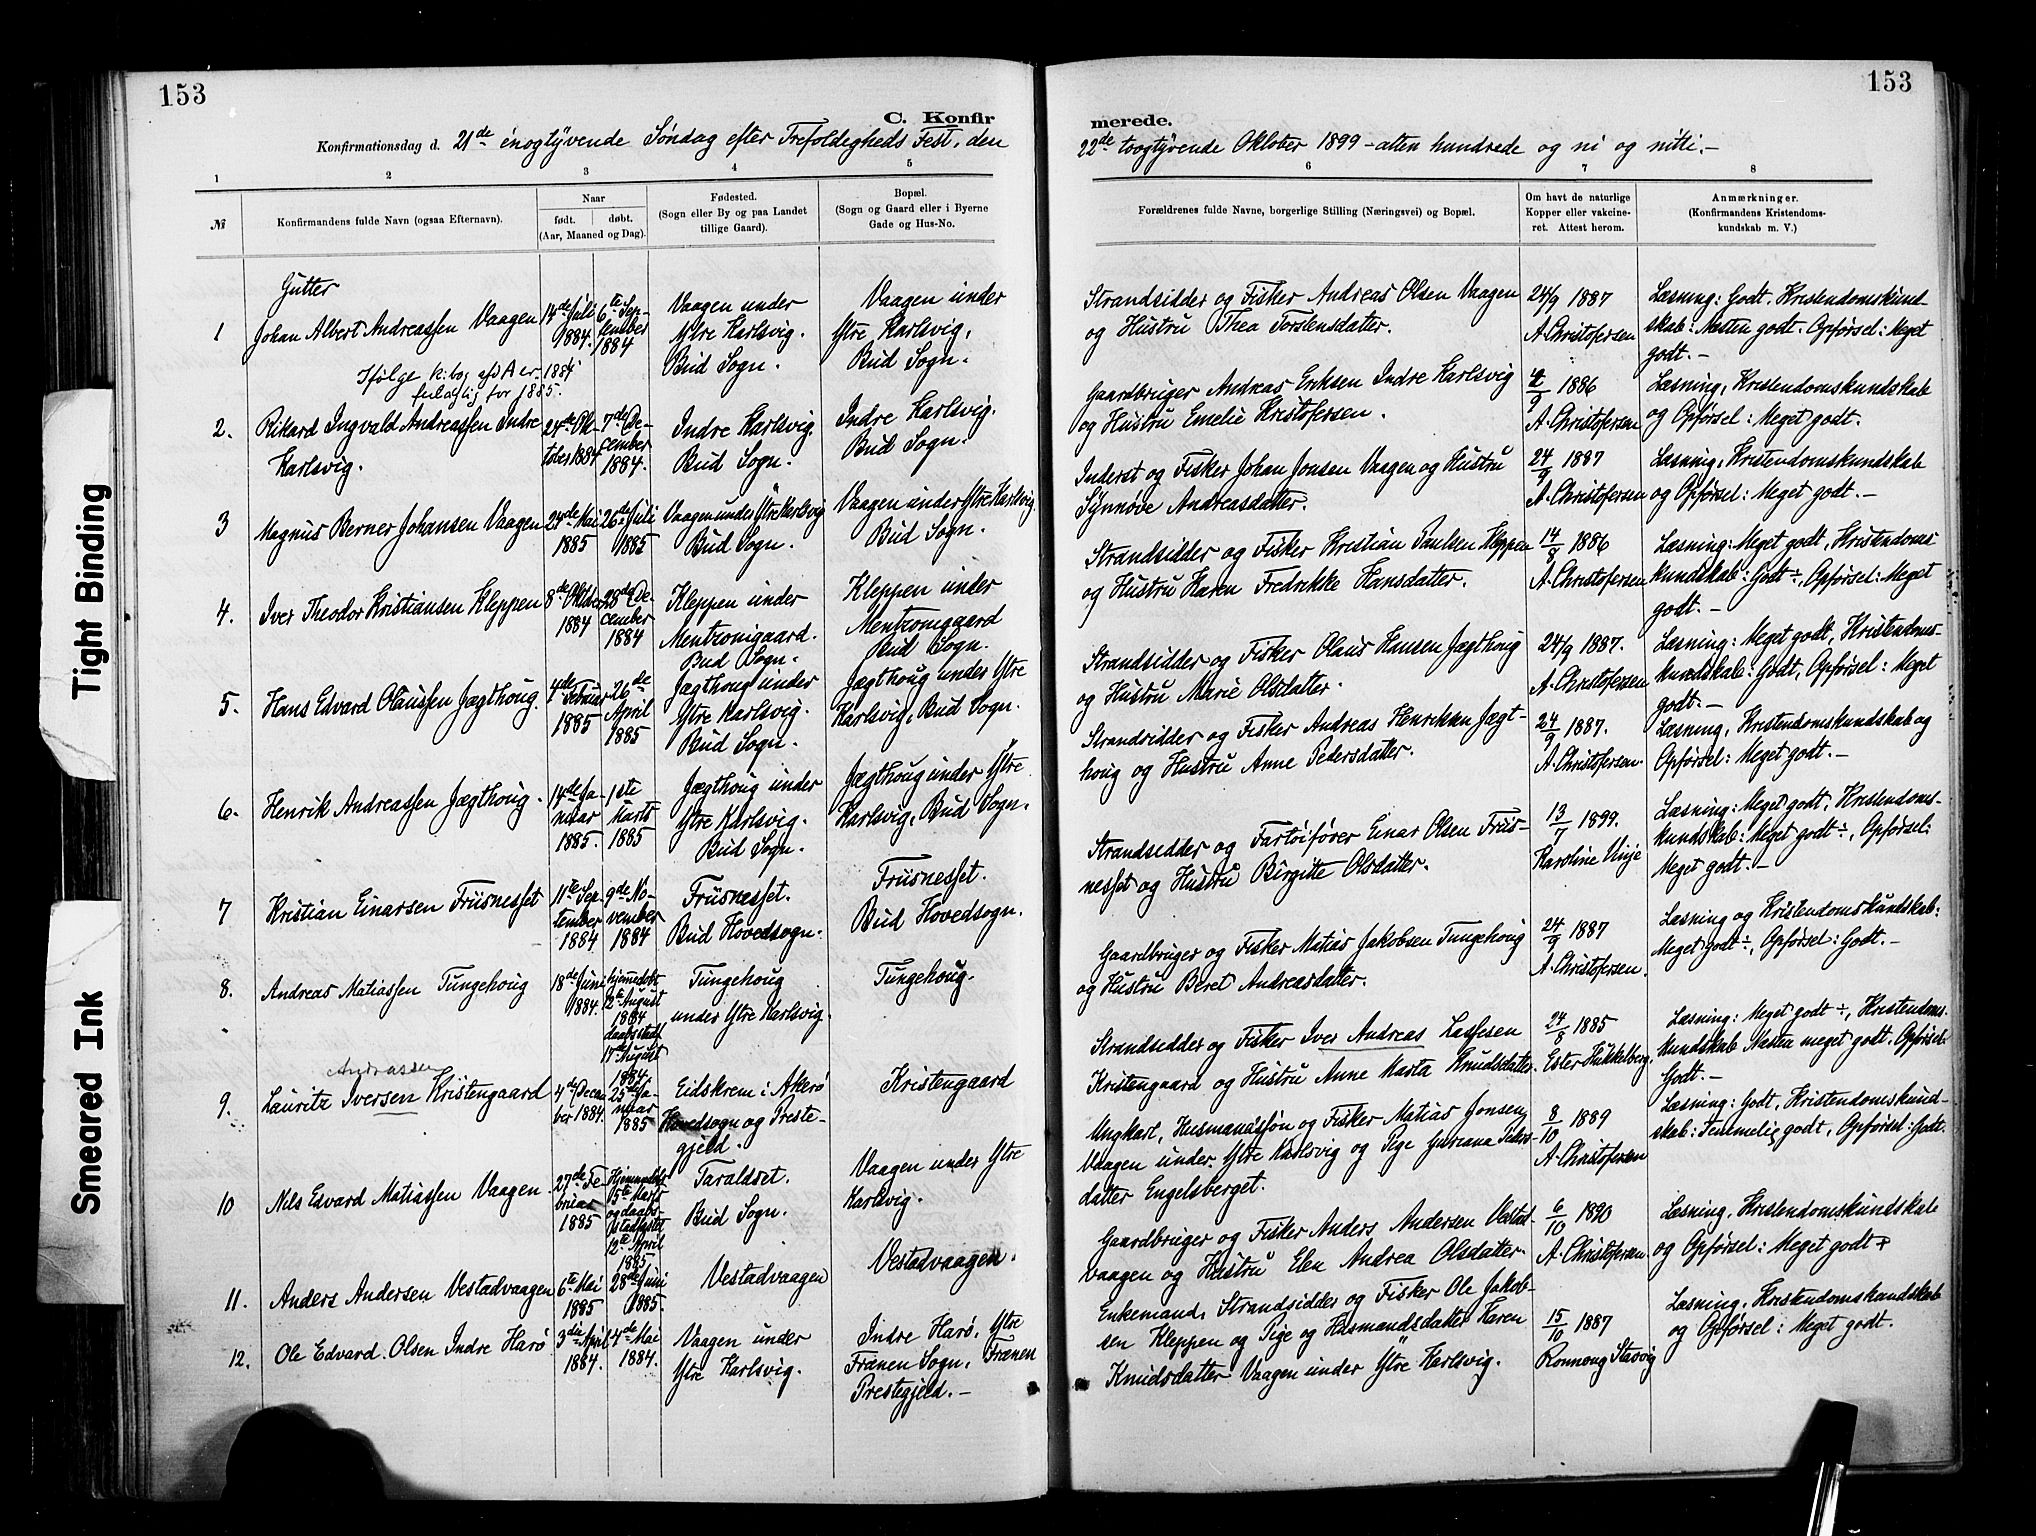 153
153
C. Konfir
merede.
Konfirmationsdag d. 21de énogtyvende Søndag efter Trefoldigheds Fest, den
22de toogtyvende Oktober 1899 – atten hundrede og ni og nitti.–
1 2 3 4 5
6 7 8
№
Konfirmandens fulde Navn (ogsaa Efternavn).
Naar
født. døbt.
(Aar, Maaned og Dag).
Fødested.
(Sogn eller By og paa Landet
tillige Gaard).
Bopæl.
(Sogn og Gaard eller i Byerne
Gade og Hus-No.
Forældrenes fulde Navne, borgerlige Stilling (Næringsvei) og Bopæl.
Om havt de naturlige
Kopper eller vakcine-
ret. Attest herom.
Anmærkninger.
(Konfirmandens Kristendoms-
kundskab m. V.)
Gutter
1
Johan Albert Andreassen Vaagen
14de Juli
1884.
6te Sep-
tember
1884
Vaagen under
Ytre Karlsvig.
Bud Sogn.
Vaagen under
Ytre Karlsvig,
Bud Sogn.
Strandsidder og Fisker Andreas Olsen Vaagen
og Hustru Thea Torstensdatter.
24/9 1887
A. Christofersen
Læsning: Godt. Kristendomskund-
skab: Næsten godt. Opførsel: Meget
godt.–
Ifølge k:bog afd A er 1884
for 1885.
2.
Rikard Ingvald Andreassen Indre
Karlsvig.
24de Ok-
tober 1884
7de De-
cember
1884.
Indre Karlsvig.
Bud Sogn.
Indre Karlsvig.
Bud Sogn.
Gaardbruger Andreas Eriksen Indre Karlsvig
og Hustru Emelie Kristofersen.
1886
A. Christofersen
Læsning, Kristendomskundskab
og Opførsel: Meget godt.
3
Magnus Berner Johansen Vaagen
24de Mai
1885
26de Juli
1885
Vaagen under Ytre Karlsvig
Bud Sogn.
Vaagen under Ytre Karlsvig
Bud Sogn.
Inderst og Fisker Johan Jonsen Vaagen og Hustru
Synnøve Andreasdatter.
24/9 1887
A. Christofersen
Læsning, Kristendomskundskab
og Opførsel: Meget godt.–
4.
Iver Theodor Kristiansen Kleppen
8de Oktober
1884
28de De-
cember
1884
Kleppen under
Mentzonigaard.
Bud Sogn.
Kleppen under
Mentzonigaard
Bud Sogn.
Strandsidder og Fisker Kristian Paulsen Kleppen
og Hustru Karen Fredrikke Hansdatter.
14/8 1886
A. Christofersen
Læsning: Meget godt, Kristendoms
kundskab: Godt ÷, Opførsel: Meget
godt.–
5.
Hans Edvard Olaussen Jægthoug.
4de Februar
1885
26de
April
1885
Jægthoug under
Ytre Karlsvig.
Bud Sogn.
Jægthoug under Ytre
Karlsvig, Bud Sogn.
Strandsidder og Fisker Olaus Hansen Jægthoug
og Hustru Marie Olsdatter.
24/9 1887.
A. Christofersen
Læsning: Meget godt, Kristendoms-
kundskab: Godt, Opførsel: Meget
godt.–
6.
Henrik Andreassen Jægthoug.
14de Ja-
nuar
1885.
1ste
Marts
1885
Jægthoug under
Ytre Karlsvig.
Bud Sogn.
Jægthoug under Ytre
Karlsvig, Bud Sogn.
Strandsidder og Fisker Andreas Henrikken Jægt-
houg og Hustru Anne Pedersdatter.
24/9 1887.
A. Christofersen.
Læsning, Kristendomskundskab og
Opførsel: Meget godt.–
7
Kristian Einarsen Frusnesset
11te Sep-
tember
1884
9de No-
vember
1884
Frusnesset.
Bud Hovedsogn.
Frusnesset.
Bud Hovedsogn.
Strandsidder og Fartøifører Einar Olsen Frus-
nesset og Hustru Birgitte Olsdatter.
13/7 1899.
Karoline Vinje
Læsning: Meget godt, Kristendoms-
kundskab: Meget godt ÷, Opførsel:
Meget godt.–
8.
Andreas Matiassen Tungehoug
18de Juni
1884.
hjemmedøbt
2de August
1884
daabsstadf.
17de August
1884.
Tungehoug
under Ytre Karlsvig.
Tungehoug.
Gaardbruger og Fisker Matias Jakobsen Tungehoug
og Hustru Beret Andreasdatter.
24/9 1887
A. Christofersen.
Læsning og Kristendomskundskab:
Meget godt ÷, Opførsel: Godt.–
9.
Andrassen
Lauritz Iversen Kristengaard
4de Decem
ber 1884.
25de Ja-
nuar
1885
Eidskrem i Akerø
Hovedsogn og Preste-
gjeld.
Kristengaard
Strandsidder og Fisker Iver Andreas Lassesen
Kristengaard og Hustru Anne Marta Knudsdatter.
24/8 1885
Ester Hukkelberg.
Læsning: Meget godt ÷, Kristendoms-
kundskab Næsten meget godt. Opførsel:
Godt.–
10
Nils Edvard Matiassen Vaagen.
27de Fe-
bruar
1885
Hjemmedøbt
15te Marts
og daabs-
stadfæstet
12te April
1885
Taraldset.
Bud Sogn.
Vaagen under Ytre
Karlsvig.
Ungkarl, Husmandssøn og Fisker Matias Jonsen
Vaagen under Ytre Karlsvig og Pige Guriana Peders-
datter Engelsberget.
8/10 1889
A. Christofersen
Læsning: Godt, Kristendomskund-
skab: Temmelig godt, Opførsel: Godt.
11.
Anders Andersen Vestadvaagen
6te Mai
1885
28de Juni
1885.
Vestadvaagen
Vestadvaagen.
Gaardbruger og Fisker Anders Andersen Vestad-
vaagen og Hustru Elen Andrea Olsdatter.
6/10 1890
A. Christofersen
Læsning, Kristendomskundskab
og Opførsel: Meget godt
12.
Ole Edvard Olsen Indre Harø
3die April
1884.
4de Mai
1884.
Vaagen under
Ytre Karlsvig.
Indre Harø, Ytre
Frænen Sogn, Frænen
Prestegjeld.–
Enkemand, Strandsidder og Fisker Ole Jakob-
sen Kleppen og Pige og Husmandsdatter Karen
Knudsdatter Vaagen under Ytre Karlsvig.
15/10 1887
Ronnoug Stavig
Læsning, Kristendomskundskab
og Opførsel: Meget godt.
Tight Binding
Smeared Ink